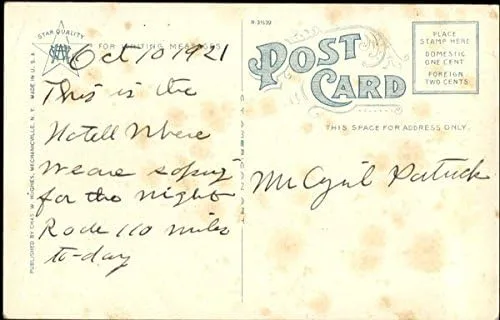 STAR QUALITY
FOR WRITING MESSAGES
Oct 10 1921
This is the
Hotell Where
We are
for the night
Rode 110 miles
to-day
PUBLISHED BY CHAS. W. HUGHES, MECHANICVILLE, N. Y. MADE IN U.S.A.
POST
CARD
THIS SPACE FOR ADDRESS ONLY.
PLACE
STAMP HERE
DOMESTIC
ONE CENT
FOREIGN
TWO CENTS
Mr Cyril Patrick